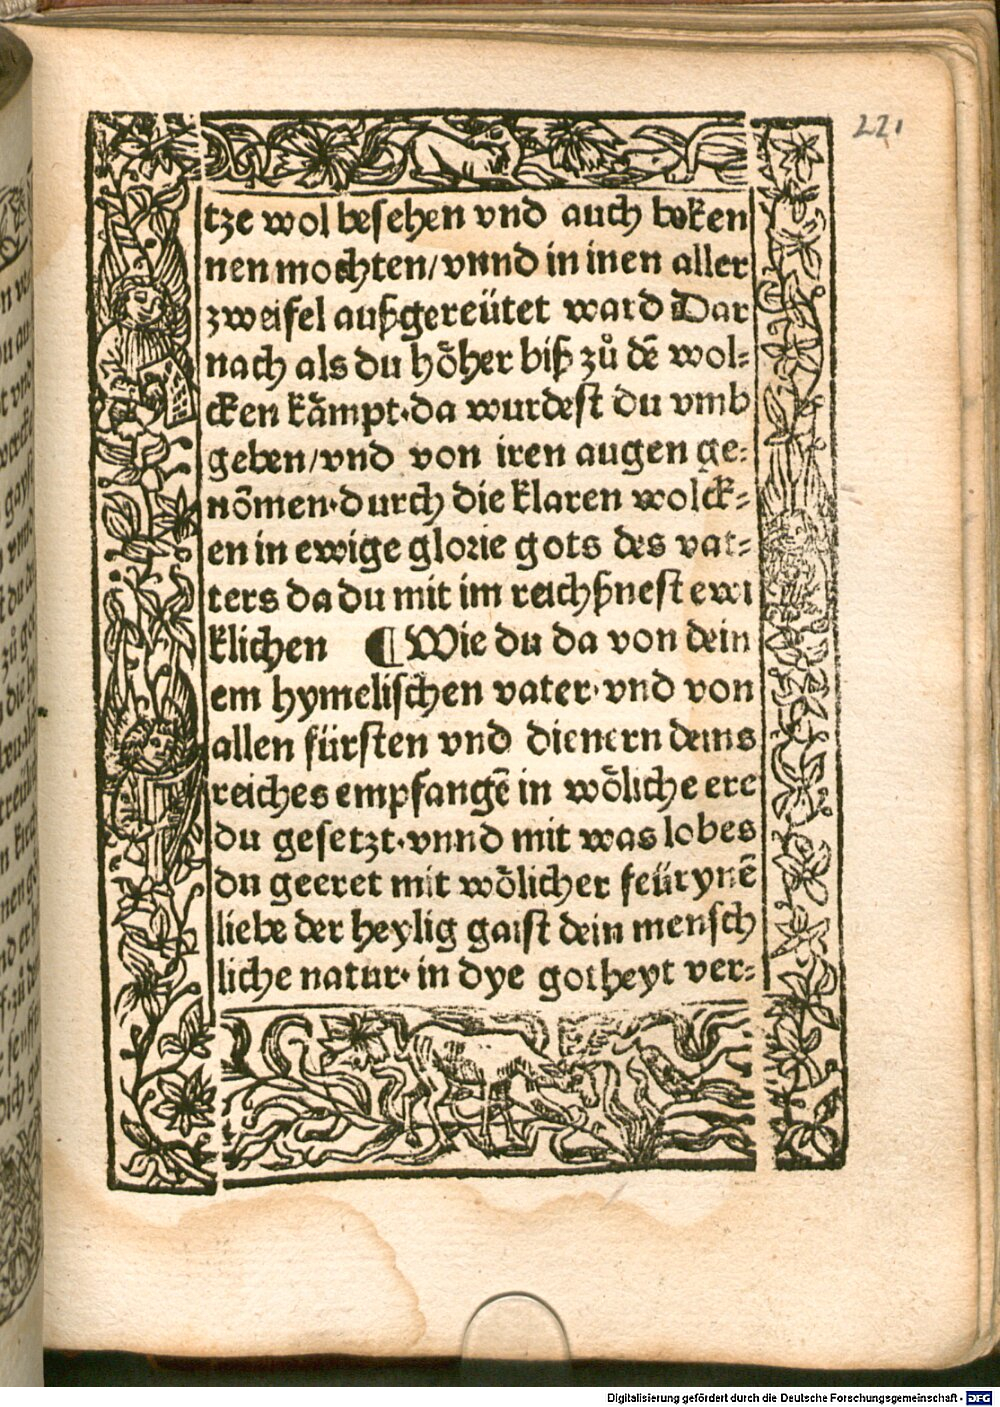 221
tze wol besehen vnd auch beken
nen mochten/vnnd in inen aller
zweifel außgereütet ward Dar
nach als du hoͤher biß zuͦ dē wol⸗
cken kaͤmpt·da wurdest du vmb
geben/vnd von iren augen ge⸗
nōmen·durch die klaren wolck⸗
en in ewige glorie gots des vat⸗
ters da du mit im reichßnest ewi
klichen ¶ Wie du da von dein
em hymelischen vater·vnd von
allen fürsten vnd dienern deins
reiches empfangē in woͤliche ere
du gesetzt·vnnd mit was lobes
du geeret mit woͤlicher feürynē
liebe der heylig gaist dein mensch
liche natur·in dye gotheyt ver⸗
Digitalisierung gefördert durch die Deutsche Forschungsgemeinschaft - DFG